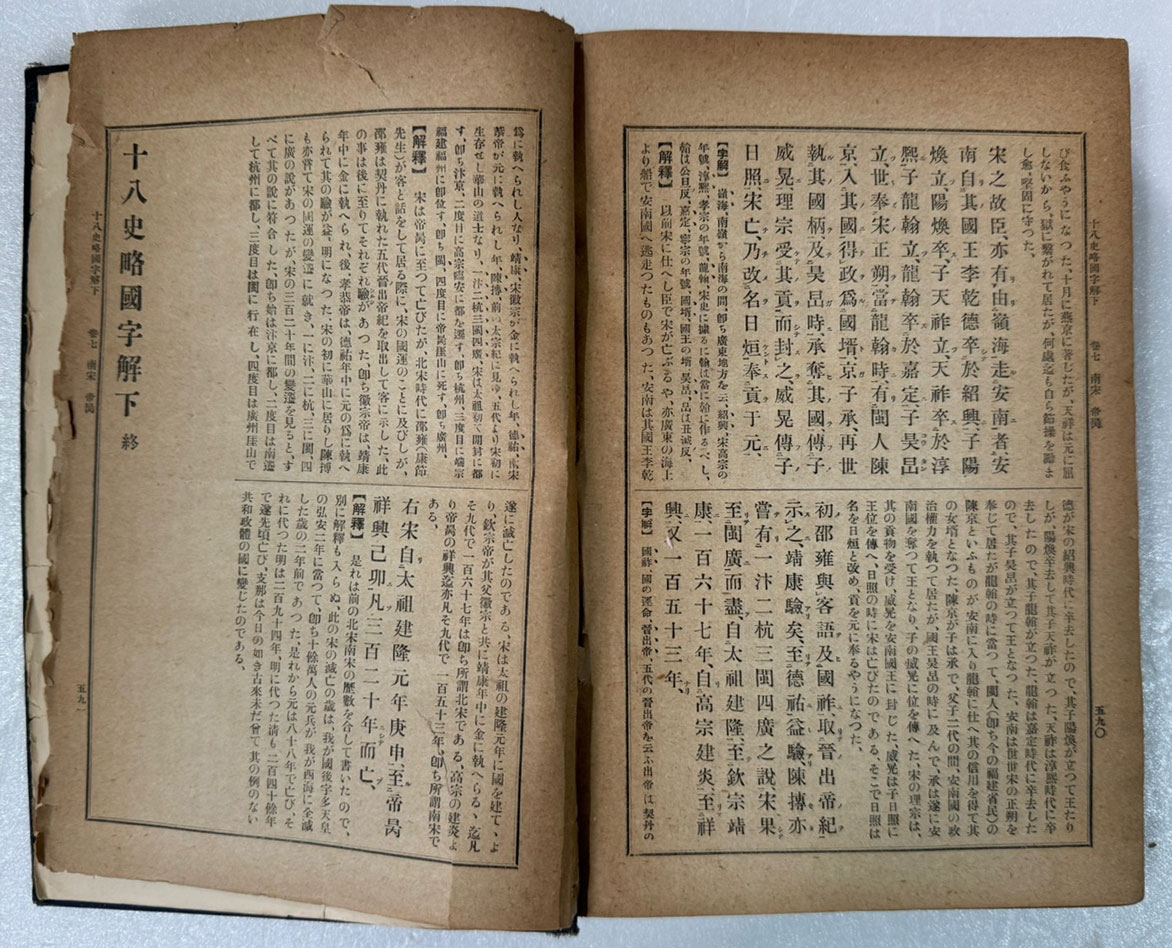 十八史略國字解下 卷七 南宋 帝昺
五九〇
び食ふやうになつた、十月に燕京に著じたが、天祥は元に屈
しないから、獄に繋がれて居たが、何處迄も自ら節操を勵ま
し奮、堅固に守つた。
宋之故臣、亦有由嶺海走安南者、安
南自其國王李乾德卒於紹興、子陽
煥立、陽煥卒、子天祚立、天祚卒於淳
熙、子龍翰立、龍翰卒於嘉定、子昊旵
立、世奉宋正朔、當龍翰時、有閩人陳
京、入其國得政、爲國壻、京子承、再世
執其國柄、及昊旵時、承奪其國、傳子
威晃、理宗受其貢、而封之、威晃傳子
日照、宋亡、乃改名日烜、奉貢于元、
【字解】 嶺海、南嶺から南海の間、卽ち廣東地方を云、紹興、宋高宗の
年號、淳熙、孝宗の年號、龍翰、宋史に據るに翰は當に𣉙に作るべし、
翰は公旦反、嘉定、寧宗の年號、國壻、國王の壻、昊旵、旵は丑減反、
【解釋】 以前宋に仕へし臣で宋が亡ぶるや、亦廣東の海上
より船で安南國へ逃走つたものもあつた、安南は其國王李乾
德が宋の紹興時代に卒去したので、其子陽煥が立つて王たり
しが、陽煥卒去して其子天祚が立つた、天祚は淳熙時代に卒
去したので、其子龍翰が立つた、龍翰は嘉定時代に卒去した
ので、其子昊旵が立つて王となつた、安南は世世宋の正朔を
奉じて居たが龍翰の時に當つて、閩人(卽ち今の福建省民)の
陳京といふものが安南に入り龍翰に仕へ其の信用を得て其
の女壻となつた、陳京が子は承で、父子二代の間、安南國の政
治權力を執つて居たが、國王昊旵の時に及んで、承は遂に安
南國を奪つて王となり、子の威晃に位を傳へた、宋の理宗は、
其の貢物を受け、威晃を安南國王に封じた、威晃は子日照に
王位を傳へ、日照の時に宋は亡びたのである、そこで日照は
名を日烜と改め、貢を元に奉るやうになつた。
初邵雍與客語及國祚、取晉出帝紀
示之、靖康驗矣、至德祐益驗、陳摶亦
嘗有一汴二杭三閩四廣之說、宋果
至閩廣而盡、自太祖建隆、至欽宗靖
康、一百六十七年、自高宗建炎、至祥
興、又一百五十三年、
【字解】 國祚、國の運命、晉出帝、五代の晉出帝を云ふ出帝は契丹の
爲に執へられし人なり、靖康、宋徽宗が金に執へられし年、德祐、南宋
恭帝が元に執へられし年、陳摶、前の太宗紀に見ゆ、五代より宋初に
生存せし華山の道士なり、一汴二杭三閩四廣、宋は太祖初く開封に都
す、卽ち汴京、二度目に高宗臨安に都を遷す、卽ち杭州、三度目に端宗
福建福州に卽位す、卽ち閩、四度目に帝昺崖山に死す、卽ち廣州、
【解釋】 宋は帝昺に至つて亡びたが、北宋時代に邵雍(康節
先生)が客と話をして居る際に、宋の國運のことに及びしが、
邵雍は契丹に執れた五代晉出帝紀を取出して客に示した、此
の事は後に至りてそれぞれ驗があつた、卽ち徽宗帝は、靖康
年中に金に執へられ、後、孝恭帝は、德祐年中に元の爲に執へ
られて其の驗が益〻明になつた、宋の初に華山に居りし陳摶
も亦嘗て宋の國運の變遷に就き、一に汴、二に杭、三に閩、四
に廣の說があつたが、宋の三百二十年間の變遷を見ると、す
べて其の說に符合した、卽ち始は汴京に都し、二度目は南遷
して杭州に都し、三度目は閩に行在し、四度目は廣州厓山で
遂に滅亡したのである、宋は太祖の建隆元年に國を建て、よ
り、欽宗帝が其父徽宗と共に靖康年中に金に執へらる、迄凡
そ九代で一百六十七年は卽ち所謂北宋である、高宗の建炎よ
り帝昺の祥興迄亦凡そ九代で一百五十三年、卽ち所謂南宋で
ある。
右宋自太祖建隆元年庚申、至帝昺
祥興己卯、凡三百二十年而亡、
【解釋】 是れは前の北宋南宋の歷數を合して書いたので、
別に解釋も入らぬ、此の宋の滅亡の歲は、我が國後宇多天皇
の弘安二年に當つて、卽ち十餘萬人の元兵が我が西海に全滅
した歲の二年前であつた是れから元は八十八年で亡び、そ
れに代つた明は二百九十四年、明に代つた淸も二百四十餘年
で遂先頃亡び、支那は今日の如き古來未だ曾て其の例のない
共和政體の國に變じたのである。
十八史略國字解下 終
十八史略國字解下 卷七 南宋 帝昺
五九一